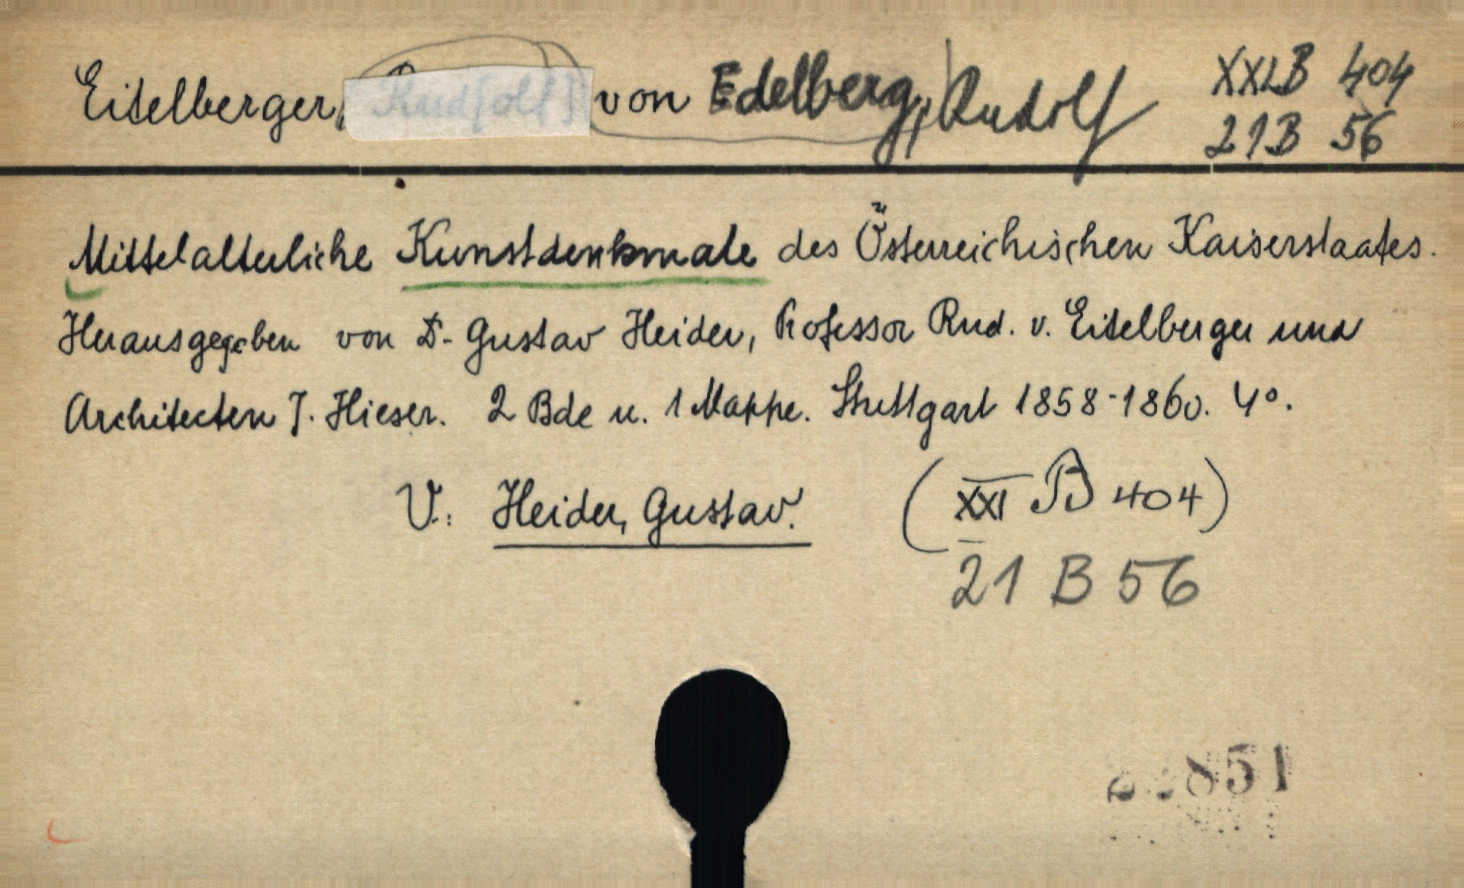 Eitelberger, Rud[olf] von Edelberg, Rudolf
XXI B 404
21 B 56
Mittelalterliche Kunstdenkmale des Österreichischen Kaiserstaates.
Herausgegeben von D. Gustav Heider, Professor Rud. v. Eitelberger und
Architecten J. Hieser. 2 Bde u. 1 Mappe. Stuttgart 1858-1860. 4°.
V.: Heider, Gustav. (XXI B 404)
21 B 56
851